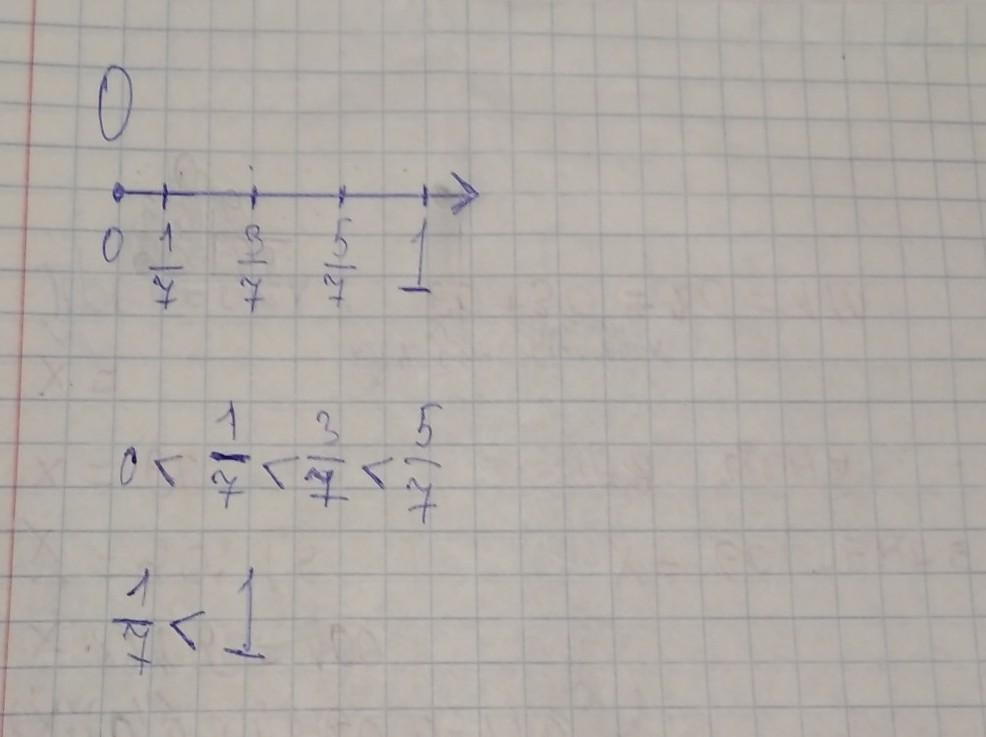 0
0 1/7 3/7 5/7 1
0 < 1/7 < 3/7 < 5/7
1/7 < 1